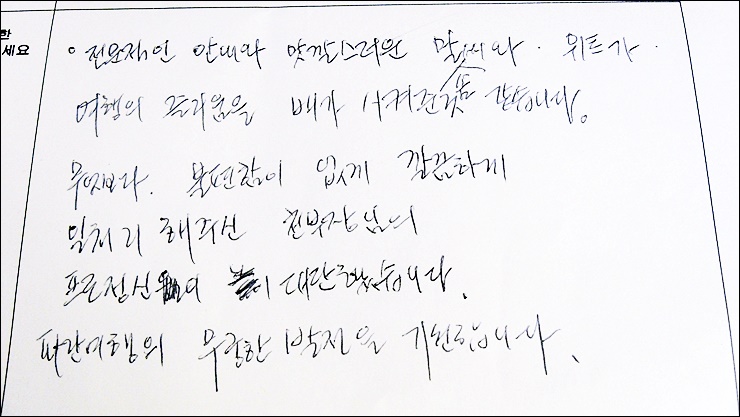 한
세요
• 전문적인 안내와 맛깔스러운 말씨와 · 위트가 ·
여행의 즐거움을 배가 시켜준 것 같습니다.
무엇보다. 불편함이 없게 깔끔하게
일처리 해주신 부장님의
프로정신이 대단했습니다.
파란여행의 무궁한 발전을 기원합니다.